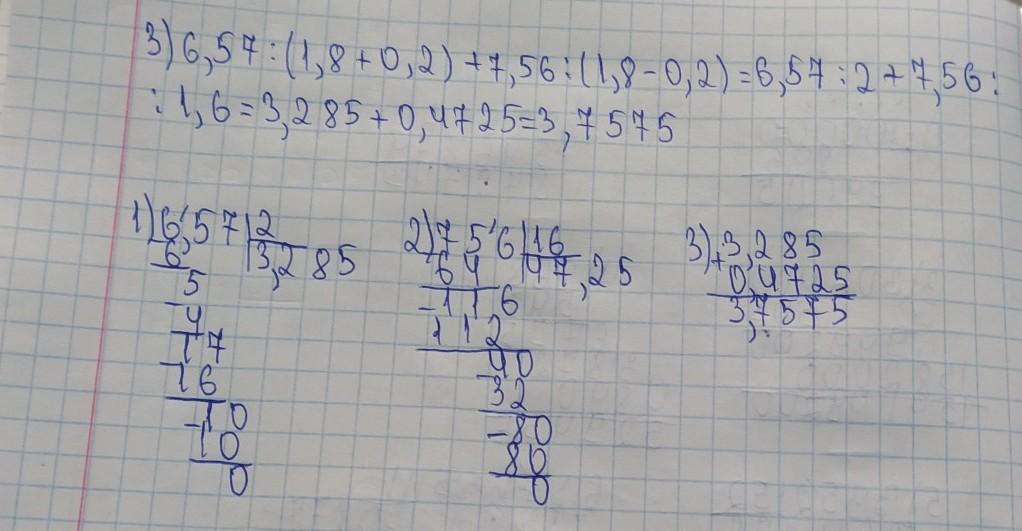 3) 6,57 : (1,8 + 0,2) + 7,56 : (1,8 - 0,2) = 6,57 : 2 + 7,56 :
: 1,6 = 3,285 + 0,4725 = 3,7575
1) 6,57 | 2
6 | 3,285
5
4
17
16
-10
10
0
2) 756 | 16
64 | 47,25
-116
112
40
32
-80
80
0
3) +3,285
0,4725
3,7575